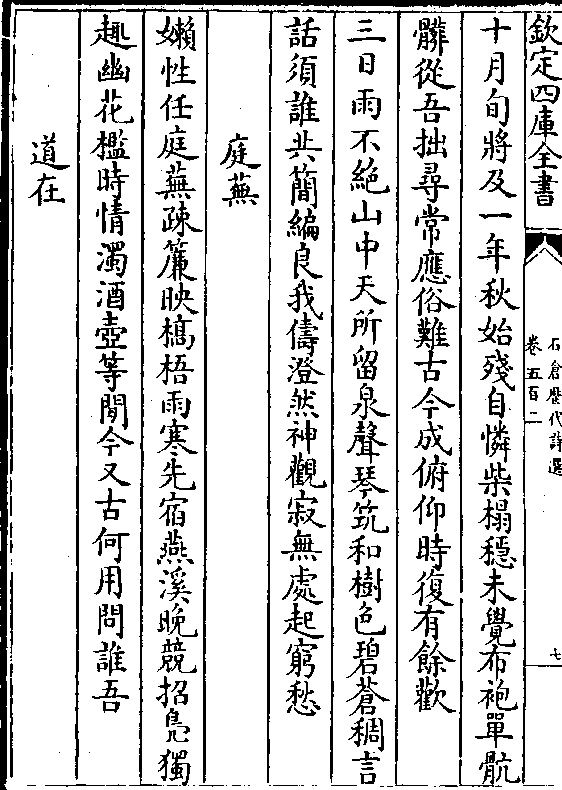 欽定四庫全書
石倉歷代詩選
卷五百二
七
十月旬將及一年秋始殘自憐柴榻穩未覺布袍單骯
髒從吾拙尋常應俗難古今成俯仰時復有餘歡
三日雨不絕山中天所留泉聲琴筑和樹色碧蒼稠言
話須誰共簡編良我儔澄然神觀寂無處起窮愁
庭蕪
嬾性任庭蕪疎簾映槁梧雨寒先宿燕溪晚競招鳬獨
趣幽花檻時情濁酒壺等閒今又古何用問誰吾
道在